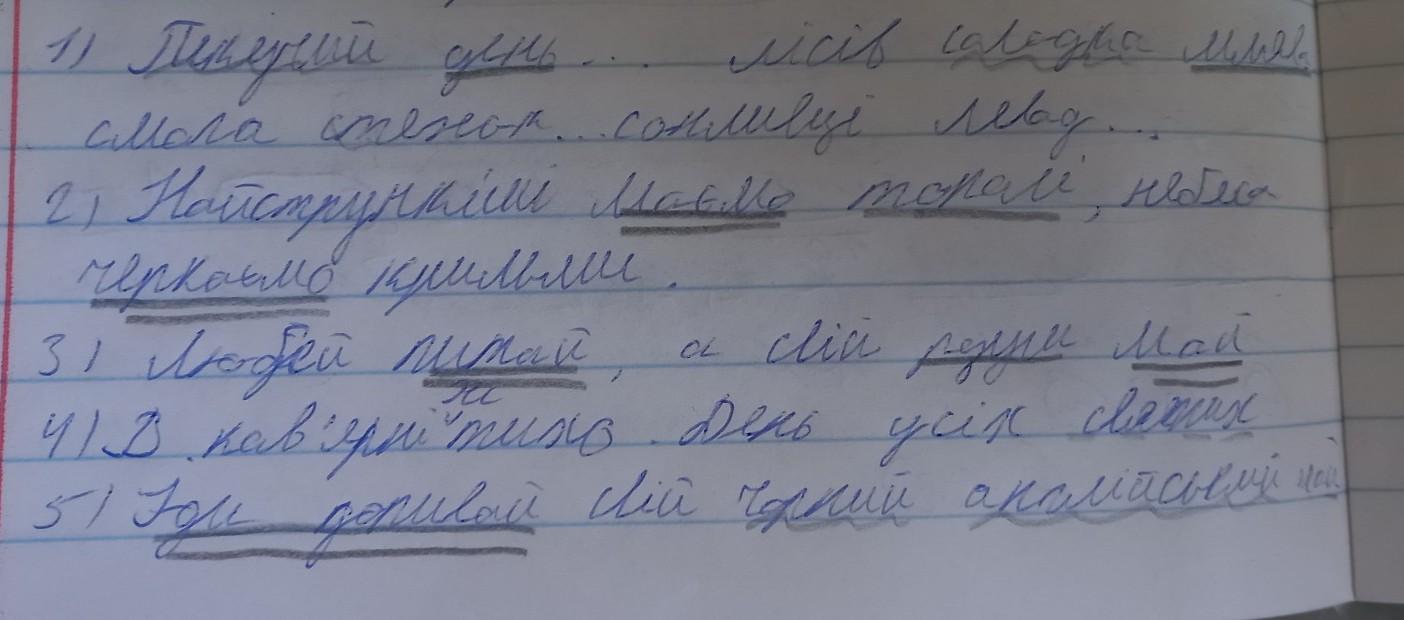 1) Пекучий день... лісів солодка млява
смола стежок... сонливці левад...
2) Найстрункіші маємо тополі, небеса
черкаємо крильми.
3) Людей питай, а свій розум май
4) В кав'ярні тихо. День усіх святих
5) Іди допивай свій чорний англійський чай